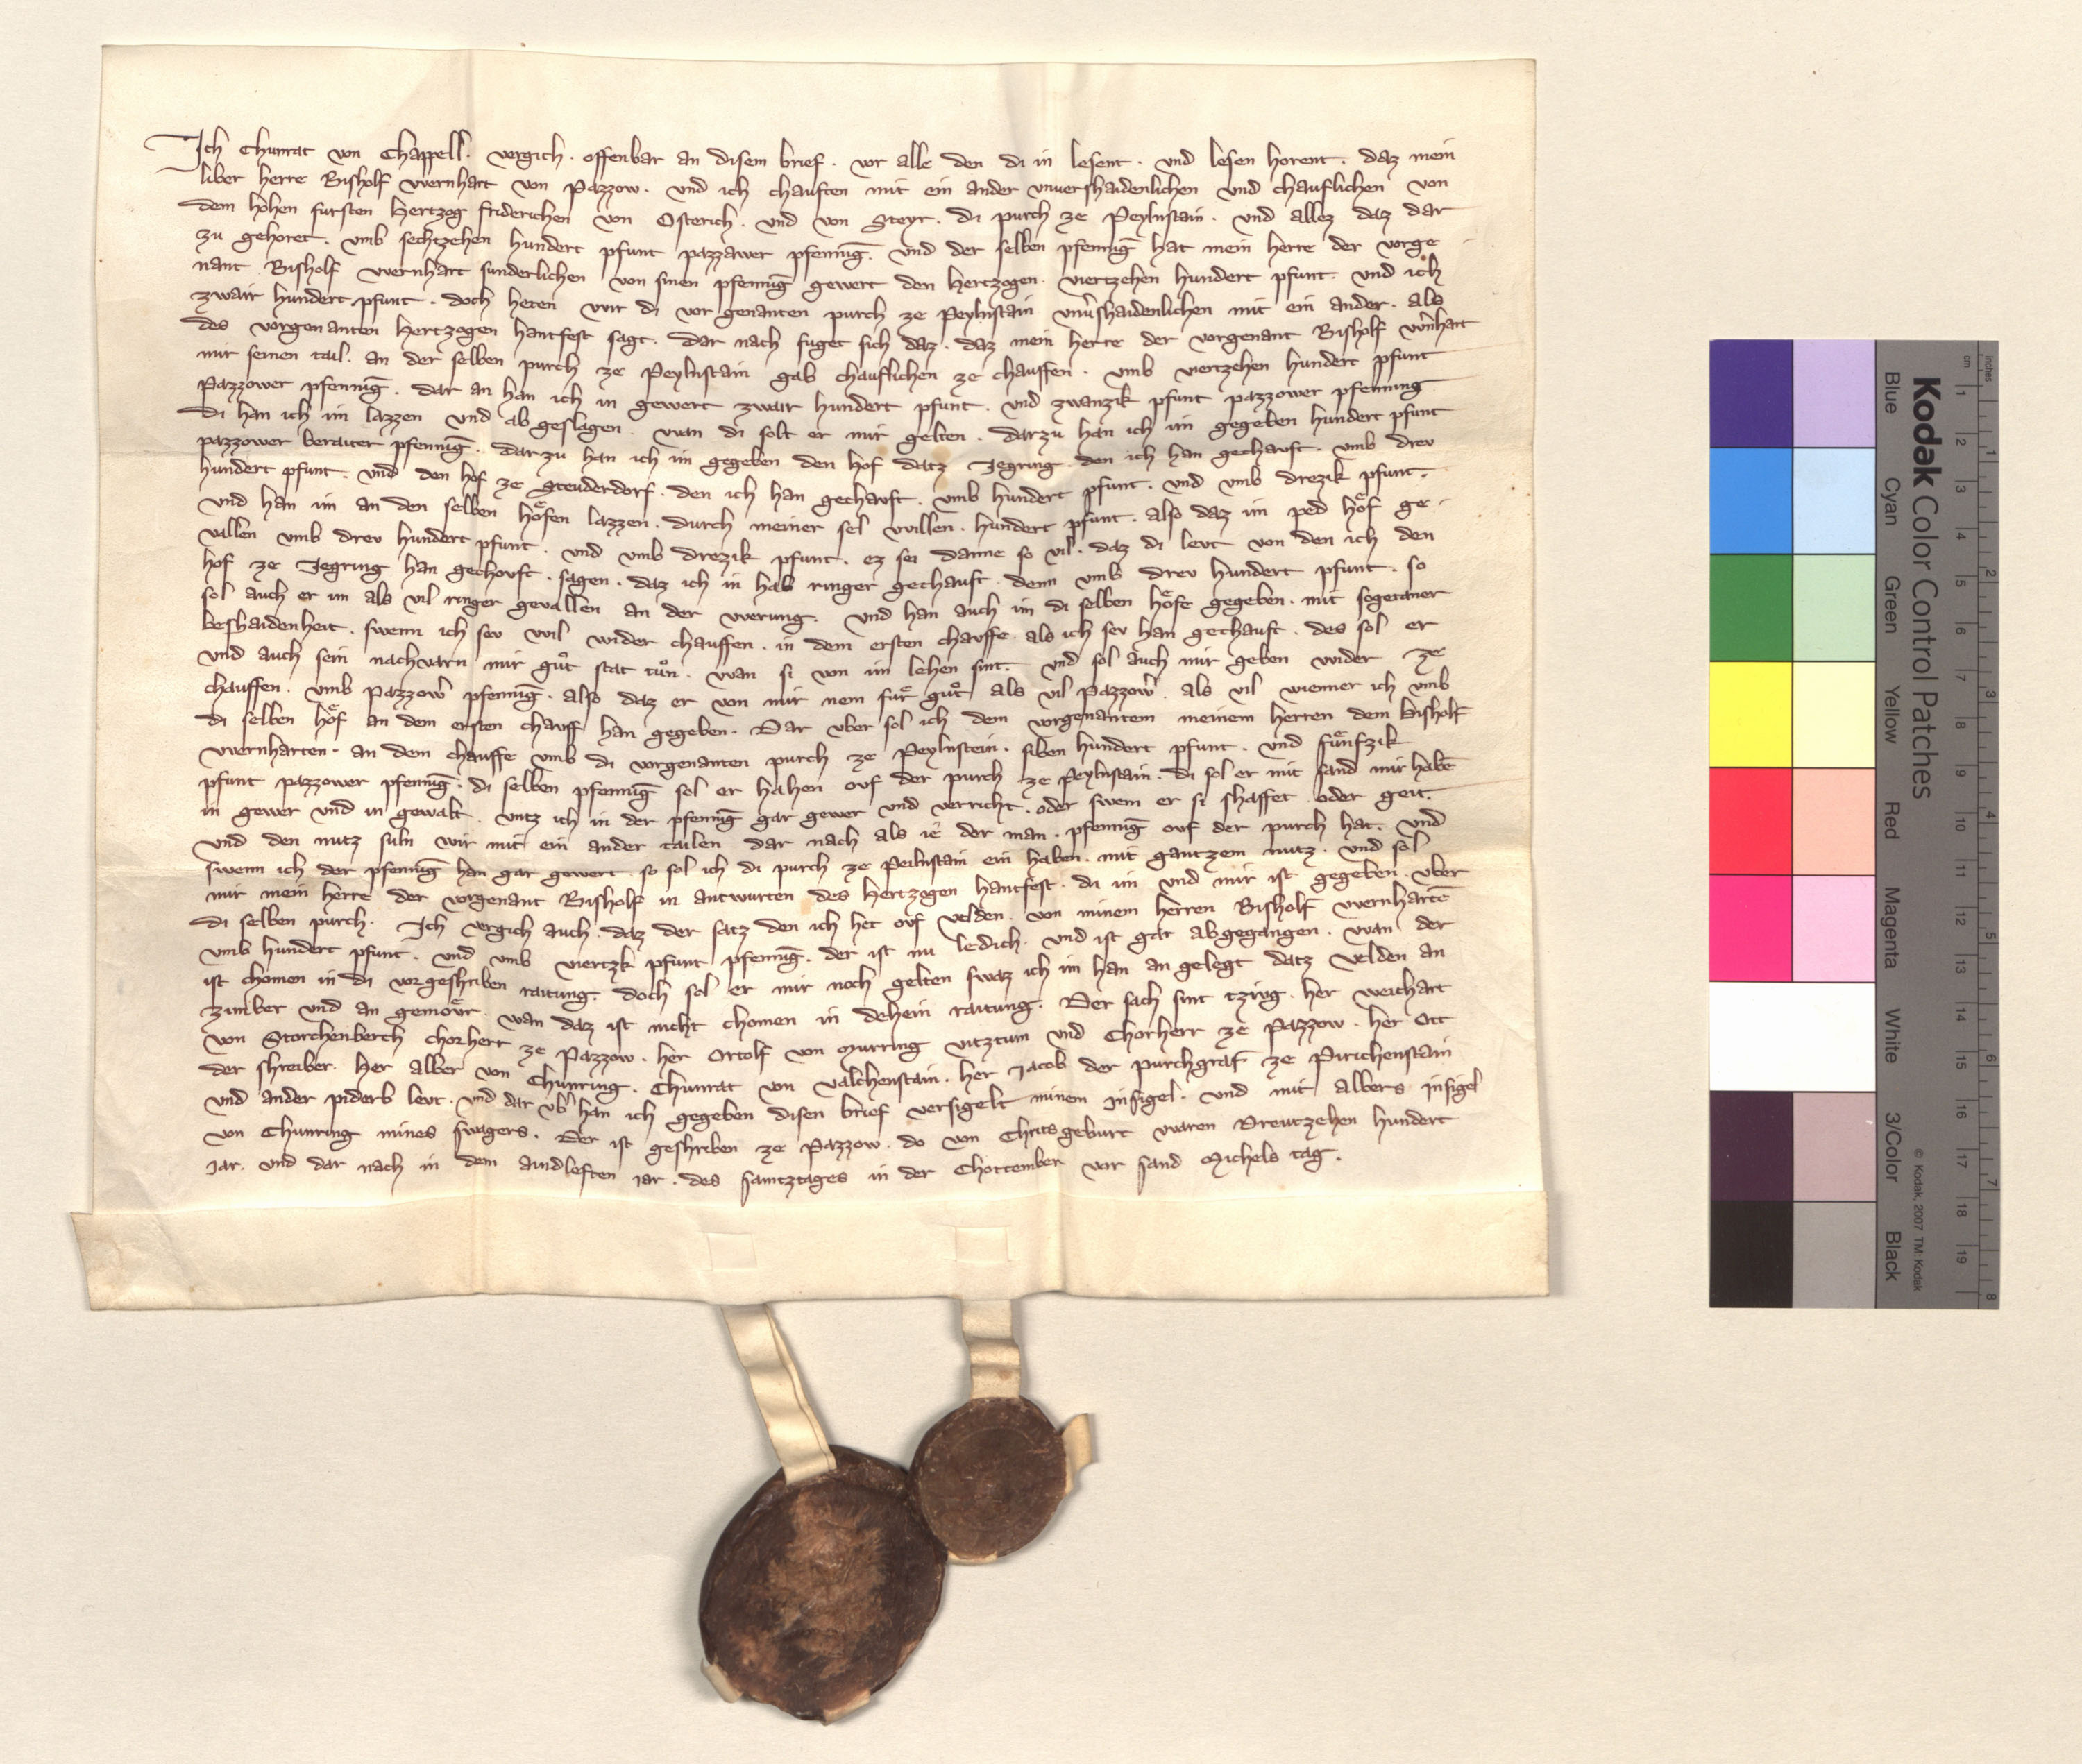 Ich Chunrat von Chappell. vergich. offenbar an disem brief. vor alle den di in lesent. und lesen horent. daz mein
liber herre Bisholf Wernhart von Pazzow. und ich chauften mit ein ander unvershaidenlichen und chauflichen von
dem hohen fursten Hertzog Friderichen von Osterich. und von Steyr. di purch ze Peylnstain. und allez daz dar
zu gehoret. umb sechtzehen hundert pfunt pazzawer pfenning̅. und der selben pfenning̅ hat mein herre der vorge
nant Bisholf Wernhart sunderlichen von sinen pfenning̅ gewert den Hertzogen. viertzehen hundert pfunt. und ich
zwair hundert pfunt. doch heten wir di vor genanten purch ze Peylnstain unv̓shaidenlichen mit ein ander. als
des vorgenanten Hertzogen hantfest sagt. dar nach fuget sich daz. daz mein herre der vorgenant Bisholf W̓nhart
mir seinen tail. an der selben purch ze Peylnstain gab chauflichen ze chauffen. umb viertzehen hundert pfunt
Pazzower pfenning̅. dar an han ich in gewert zwair hundert pfunt. und zwanzik pfunt pazzower pfenning
di han ich im lazzen und ab geslagen. wan di solt er mir gelten. darzu han ich im gegeben hundert pfunt
pazzower beraiter pfenning̅. dar zu han ich im gegeben den hof datz Jegring. den ich han gechauft. umb drev
hundert pfunt. und den hof ze Steuderdorf. den ich han gechauft. umb hundert pfunt. und umb drezik pfunt.
und han im an den selben hoͤfen lazzen. durch meiner sel willen. hundert pfunt. also daz im ped hoͤf ge
vallen umb drev hundert pfunt. und umb drezik pfunt. ez sei danne so vil. daz di levt von den ich den
hof ze Jegring han gechouft. sagen. daz ich in hab ringer gechauft. denn umb drev hundert pfunt. so
sol auch er im als vil ringer gevallen an der werung. und han auch im di selben hoͤfe gegeben. mit sogetaner
beshaidenheit. swenn ich sev wil wider chauffen. in dem ersten chauffe. als ich sev han gechauft. des sol er
und auch sein nachvarn mir guͦt stat tuͦn. wan si von im lehen sint. und sol auch mir geben wider ze
chauffen. umb Pazzow̓ pfenning̅. also daz er von mir nem fuͤr guͦt als vil Pazzow̓. als vil wienner ich umb
di selben hoͤf an dem ersten chauff han gegeben. Dar uber sol ich dem vorgenantem meinem herren dem Bisholf
Wernharten. an dem chauffe umb di vorgenanten purch ze Peylnstein. siben hundert pfunt. und fuͤnfzik
pfunt pazzower pfenning̅. di selben pfenning̅ sol er hahen ovf der purch ze Peylnstain. di sol er mit sand mir habe̅
in gewer und in gewalt. untz ich in der pfenning̅ gar gewer und verricht. oder swem er si shaffet oder geit.
und den nutz suln wir mit ein ander tailen dar nach als ie der man. pfenning̅ ovf der purch hat. und
swenn ich der pfenning̅ han gar gewert so sol ich di purch ze Peilnstain ein haben. mit gantzem nutz. und sol
mir mein herre der vorgenant Bisholf in antwurten des Hertzogen hantfest. di im und mir ist gegeben. uber
di selben purch. Ich vergich auch. daz der satz den ich het ovf Velden. von minem herren Bisholf Wernharte̅
umb hundert pfunt. und umb viertzk pfunt pfenning̅. der ist nu ledich. und ist gar abgegangen. wan der
ist chomen in di vorgeshriben raitung. doch sol er mir noch gelten swaz ich im han an gelegt datz Velden an
zimber und an gemoͤur. wan daz ist nicht chomen in dehein raitung. Der sach sint tzivg. her Weichart
von Storchenberch chorherr ze Pazzow. her Ortolf von Murring Vitztum und Chorherr ze Pazzow. her Ott
der shreiber. her Alber von Chunring. Chunrat von Valchenstain. her Jacob der purchgraf ze Pirichenstain
und ander piderb levt. und dar ub̓ han ich gegeben disen brief versigelt minem insigel. und mit Albers insigel
von Chunring mines swagers. Der ist geshriben ze Pazzow. do von Christsgeburt waren Dreutzehen hundert
jar. und dar nach in dem aindleften jar. des samtztages in der Chottember vor sand Michels tag.
Kodak Color Control Patches
Blue Cyan Green Yellow Red Magenta White 3/Color Black
© Kodak, 2007 TM: Kodak
cm 1 2 3 4 5 6 7 8 9 10 11 12 13 14 15 16 17 18 19
inches 1 2 3 4 5 6 7 8